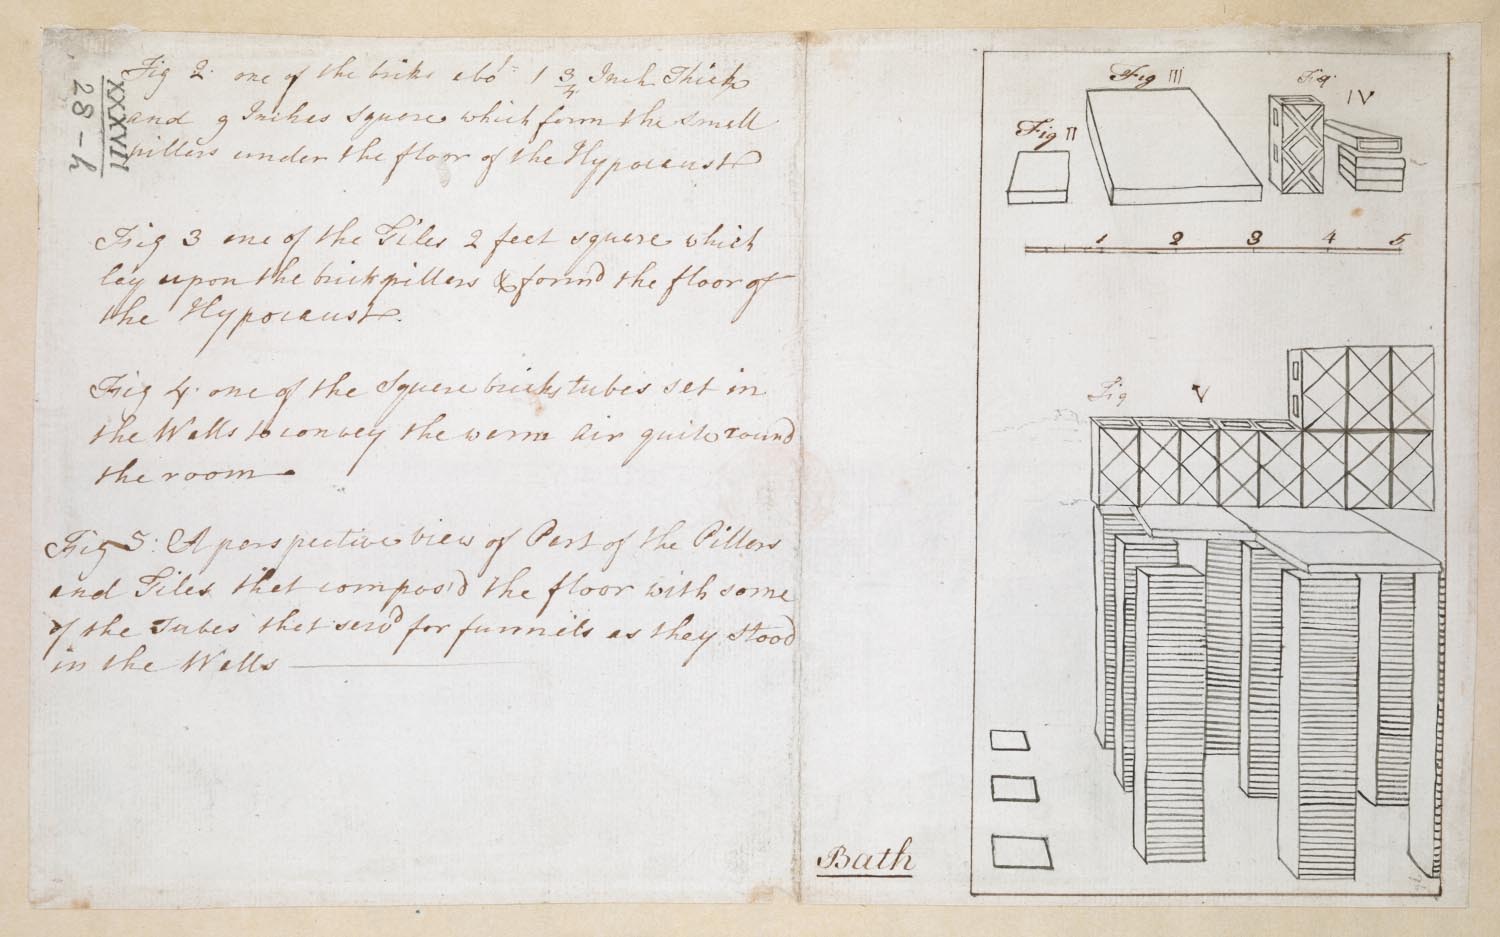 XXXVII
28-h
Fig 2. one of the briks abot 1 3/4 Inch Thick
and 9 Inches square which form the small
pillers under the floor of the Hypocaust
Fig 3 one of the Tiles 2 feet square which
lay upon the brick pillers & formd the floor of
the Hypocaust.
Fig 4. one of the Square bricks tubes set in
the Walls to convey the warm air quite round
the room
Fig 5: A perspective view of Part of the Pillers
and Tiles that compos'd the floor with some
of the Tubes that serv'd for funnels as they stood
in the Walls
Bath
Fig III
Fig IV
Fig II
1 2 3 4 5
Fig V